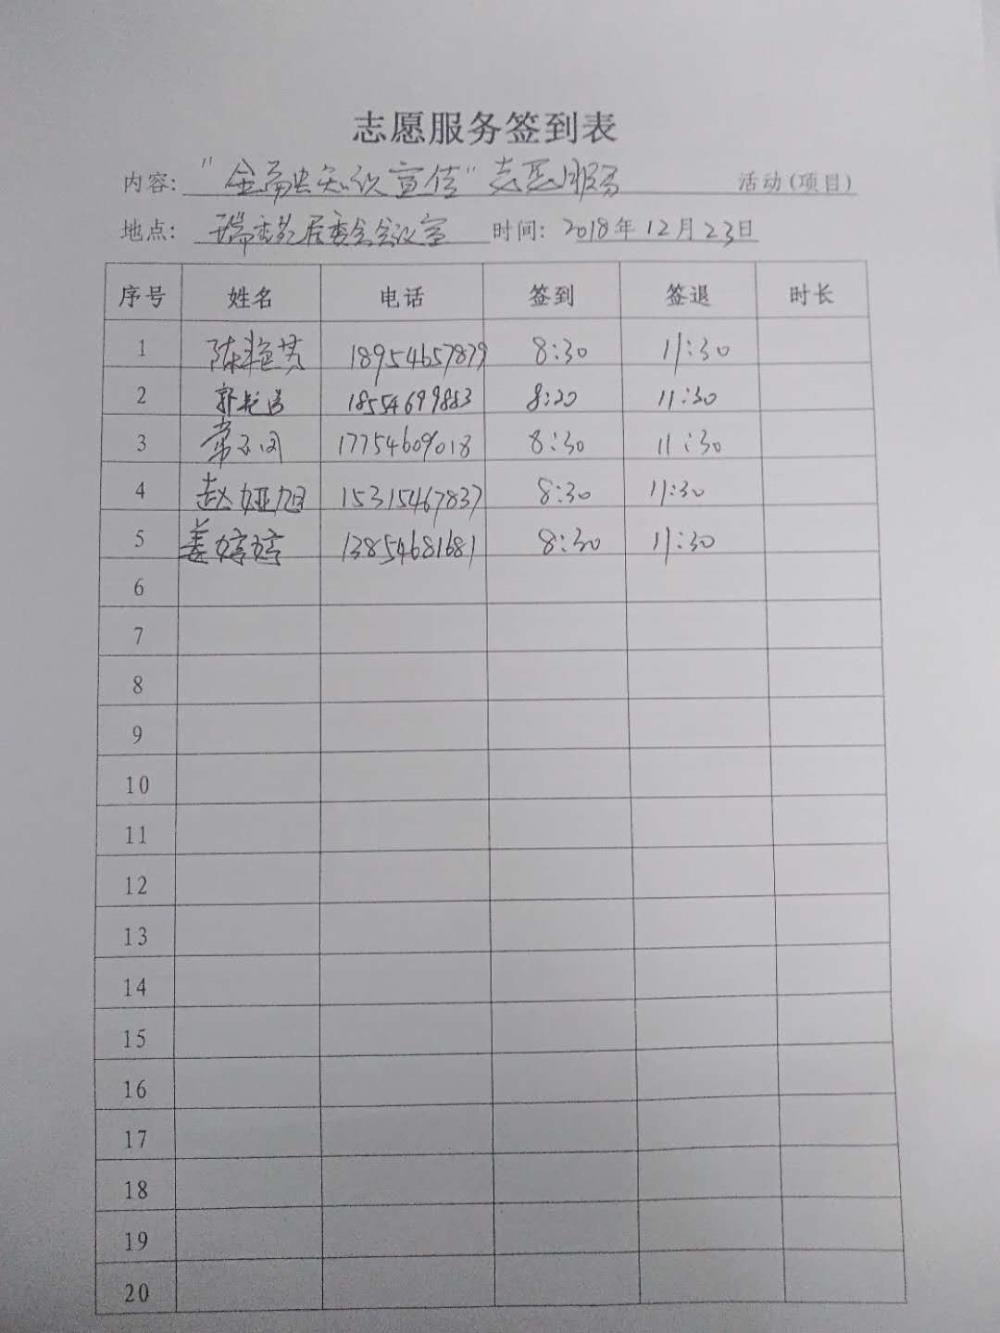 志愿服务签到表
内容: "金融知识宣传"志愿服务 活动(项目)
地点: 居委会会议室 时间: 2018年12月23日
序号 姓名 电话 签到 签退 时长
1 陈艳 18954657879 8:30 11:30
2 郭 18554699883 8:20 11:30
3 常 17754609018 8:30 11:30
4 赵娅旭 15315467837 8:30 11:30
5 姜婷婷 13854681681 8:30 11:30
6
7
8
9
10
11
12
13
14
15
16
17
18
19
20